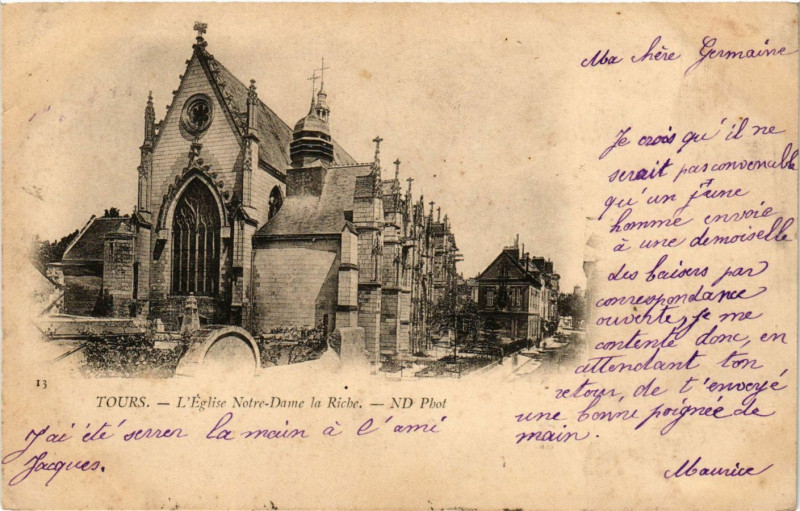 Ma chère Germaine
Je crois qu'il ne
serait pas convenable
qu'un jeune
homme envoie
à une demoiselle
des baisers par
correspondance
ouverte, je me
contente donc, en
attendant ton
retour, de t'envoyé
une bonne poignée de
main.
Maurice
13
TOURS. — L'Église Notre-Dame la Riche. — ND Phot
J'ai été serrer la main à l'ami
Jacques.